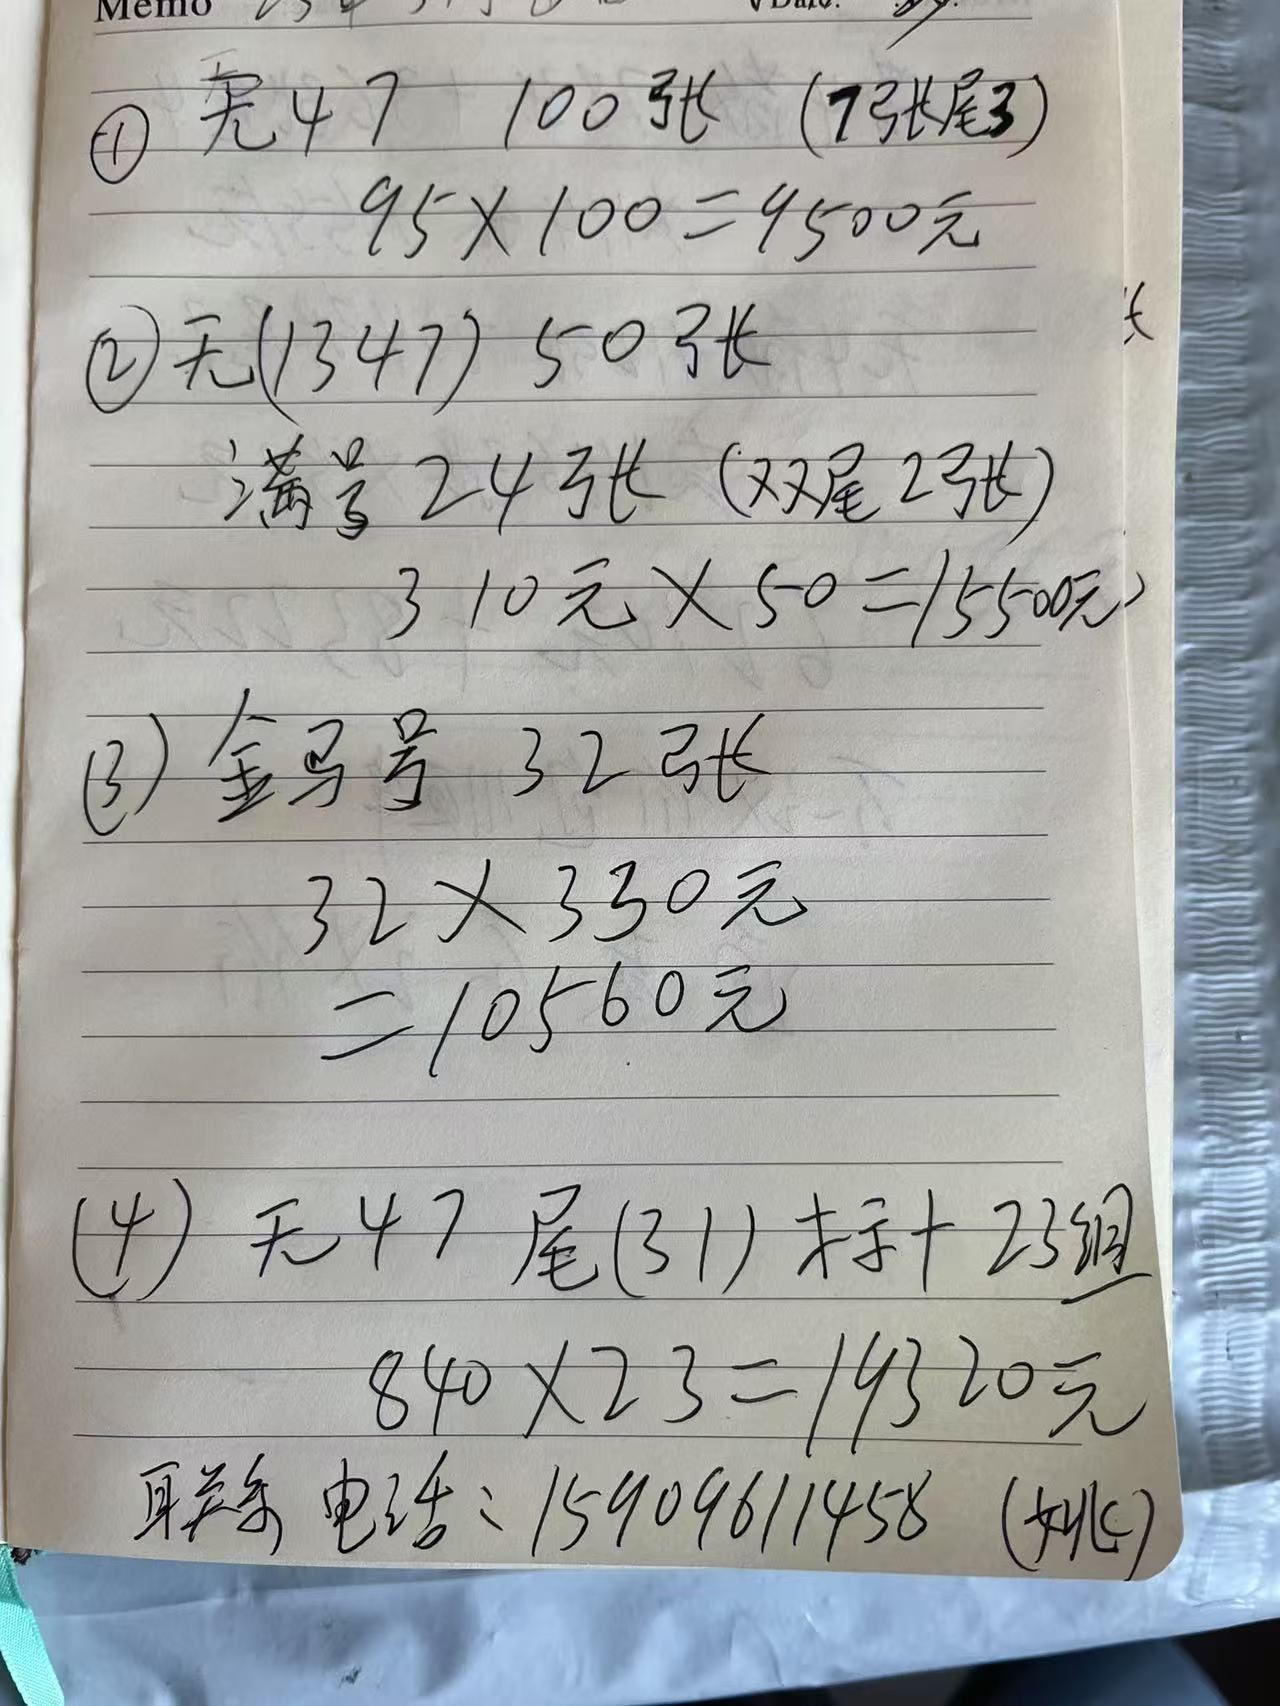 Memo
Date:
① 无47 100张 (7张尾3)
95×100=9500元
② 无(1347) 50张
张
满号24张 (双尾2张)
310元×50=15500元
(3) 金马号 32张
32×330元
=10560元
(4) 无47 尾(31) 标十 23组
840×23=19320元
联系电话:15909611458 (姚)